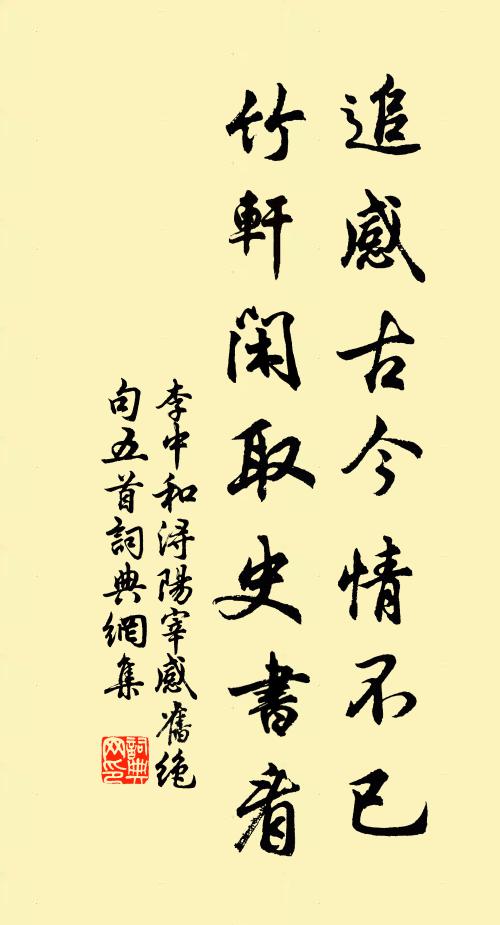 追感古今情不已
竹軒閑取史書看
李中和潯陽宰感舊絕
句五首詞典網集
詞典
网印